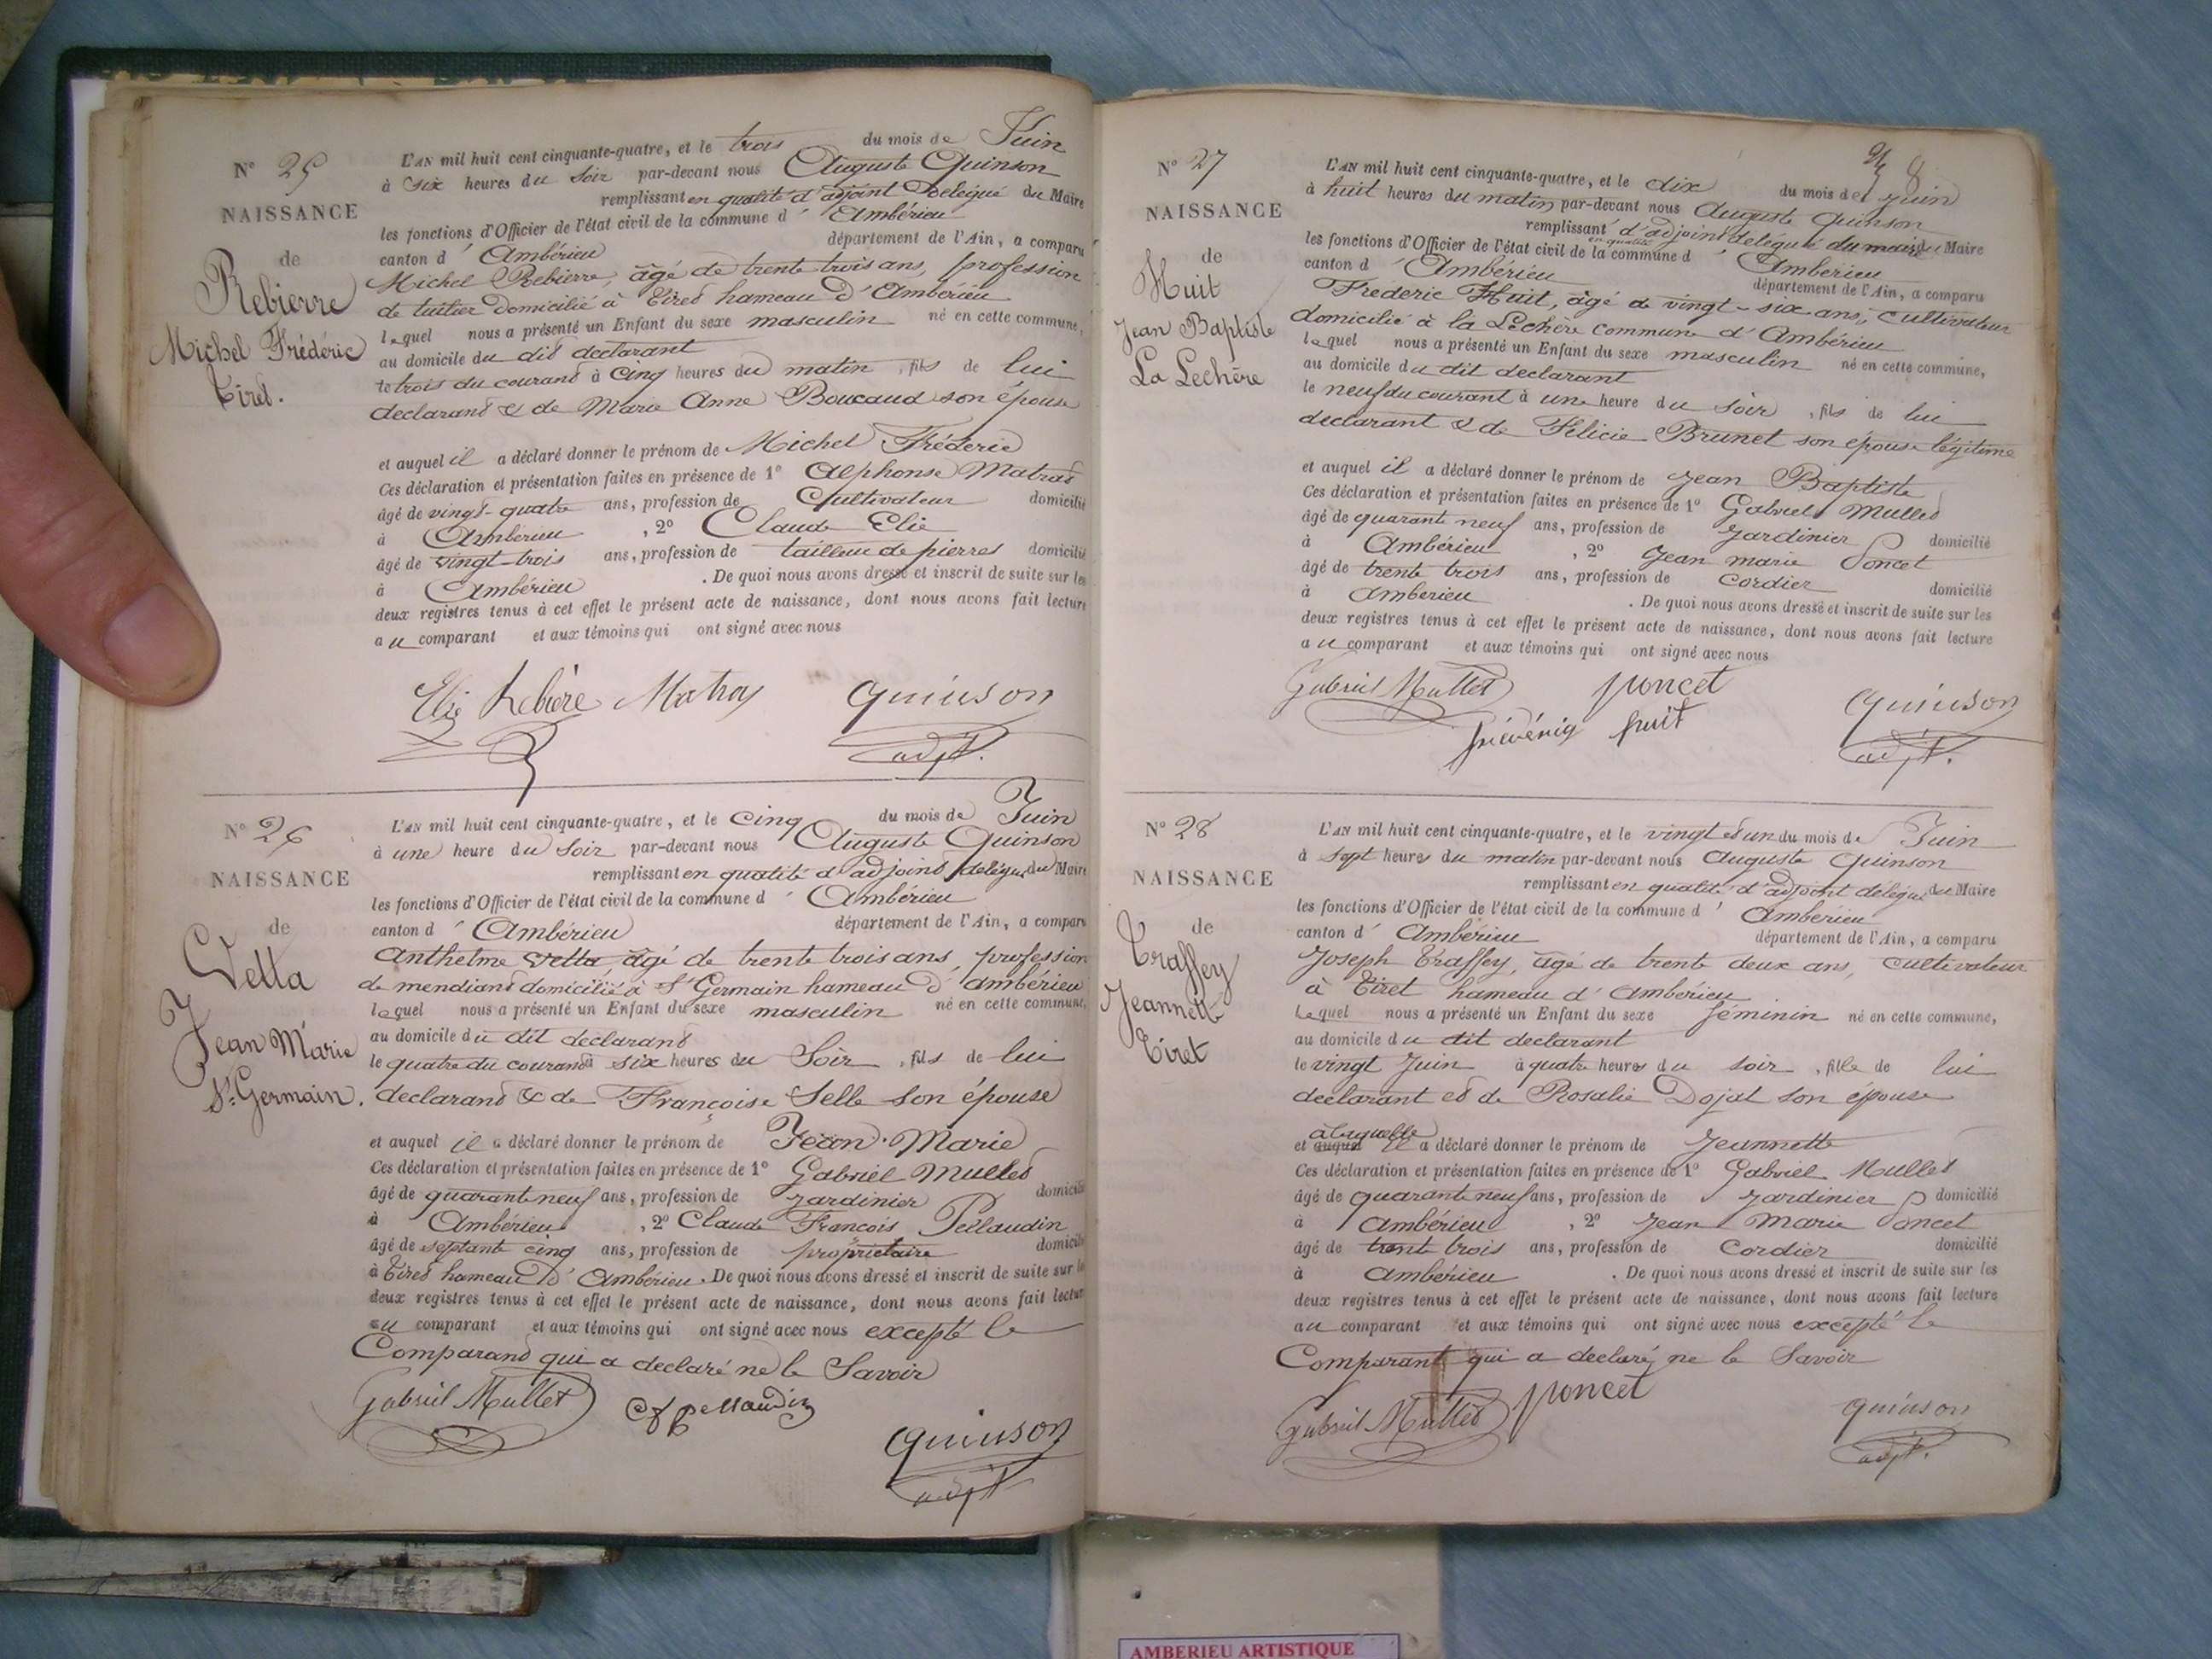 N° 25
NAISSANCE
de
Rebierre
Michel Frédéric
Tiret.
L'AN mil huit cent cinquante-quatre, et le trois du mois de Juin
à six heures du soir par-devant nous Auguste Quinson
remplissant en qualité d'adjoint délégué du Maire
les fonctions d'Officier de l'état civil de la commune d' Ambérieu
canton d' Ambérieu département de l'Ain, a comparu
Michel Rebierre, âgé de trente trois ans, profession
de tuilier domicilié à Tiret hameau d'Ambérieu
lequel nous a présenté un Enfant du sexe masculin né en cette commune,
au domicile du dit declarant
le trois du courant à cinq heures du matin, fils de lui
declarant & de Marie Anne Boucaud son épouse
et auquel il a déclaré donner le prénom de Michel Fréderic
Ces déclaration et présentation faites en présence de 1° Alphonse Matras
âgé de vingt-quatre ans, profession de Cultivateur domicilié
à Ambérieu, 2° Claude Elie
âgé de vingt-trois ans, profession de tailleur de pierres domicilié
à Ambérieu. De quoi nous avons dressé et inscrit de suite sur les
deux registres tenus à cet effet le présent acte de naissance, dont nous avons fait lecture
au comparant et aux témoins qui ont signé avec nous
Elie Rebière Matray quinson
adjt.
N° 26
NAISSANCE
de
Vetta
Jean Marie
St. Germain.
L'AN mil huit cent cinquante-quatre, et le cinq du mois de Juin
à une heure du soir par-devant nous Auguste Quinson
remplissant en qualité d'adjoint délégué du Maire
les fonctions d'Officier de l'état civil de la commune d' Ambérieu
canton d' Ambérieu département de l'Ain, a comparu
Anthelme Vetta âgé de trente trois ans, profession
de mendiant domicilié à St Germain hameau d'ambérieu
lequel nous a présenté un Enfant du sexe masculin né en cette commune,
au domicile du dit declarant
le quatre du courant à six heures du Soir, fils de lui
declarant & de Françoise Selle son épouse
et auquel il a déclaré donner le prénom de Jean Marie
Ces déclaration et présentation faites en présence de 1° Gabriel Mullet
âgé de quarante neuf ans, profession de Jardinier domicilié
à Ambérieu, 2° Claude François Pellaudin
âgé de septante cinq ans, profession de propriétaire domicilié
à Tiret hameau d'Ambérieu. De quoi nous avons dressé et inscrit de suite sur les
deux registres tenus à cet effet le présent acte de naissance, dont nous avons fait lecture
au comparant et aux témoins qui ont signé avec nous excepté le
Comparant qui a declaré ne le Savoir
Gabriel Mullet Cf pellaudin
quinson
adjt
8
N° 27
NAISSANCE
de
Huit
Jean Baptiste
La Lechère
L'AN mil huit cent cinquante-quatre, et le dix du mois de Juin
à huit heures du matin par-devant nous Auguste Quinson
remplissant en qualité d'adjoint délégué du maire du Maire
les fonctions d'Officier de l'état civil de la commune d' Ambérieu
canton d' Ambérieu département de l'Ain, a comparu
Frederic Huit, âgé de vingt-six ans, cultivateur
domicilié à la Lechère commune d'Ambérieu
lequel nous a présenté un Enfant du sexe masculin né en cette commune,
au domicile du dit declarant
le neuf du courant à une heure du soir, fils de lui
declarant & de Félicie Brunet son épouse légitime
et auquel il a déclaré donner le prénom de Jean Baptiste
Ces déclaration et présentation faites en présence de 1° Gabriel Mullet
âgé de quarante neuf ans, profession de Jardinier domicilié
à Ambérieu, 2° Jean marie Poncet
âgé de trente trois ans, profession de cordier domicilié
à Ambérieu. De quoi nous avons dressé et inscrit de suite sur les
deux registres tenus à cet effet le présent acte de naissance, dont nous avons fait lecture
au comparant et aux témoins qui ont signé avec nous
Gabriel Mullet poncet quinson
huit adjt.
N° 28
NAISSANCE
de
Traffey
Jeannette
Tiret
L'AN mil huit cent cinquante-quatre, et le vingt et un du mois de Juin
à sept heures du matin par-devant nous Auguste Quinson
remplissant en qualité d'adjoint délégué du Maire
les fonctions d'Officier de l'état civil de la commune d' Ambérieu
canton d' Ambérieu département de l'Ain, a comparu
Joseph Traffey, âgé de trente deux ans, cultivateur
à Tiret hameau d'Ambérieu
lequel nous a présenté un Enfant du sexe féminin né en cette commune,
au domicile du dit declarant
le vingt Juin à quatre heures du soir, fille de lui
declarant et de Rosalie Dojat son épouse
et auquel à laquelle il a déclaré donner le prénom de Jeannette
Ces déclaration et présentation faites en présence de 1° Gabriel Mullet
âgé de quarante neuf ans, profession de Jardinier domicilié
à Ambérieu, 2° Jean Marie Poncet
âgé de trente trois ans, profession de Cordier domicilié
à Ambérieu. De quoi nous avons dressé et inscrit de suite sur les
deux registres tenus à cet effet le présent acte de naissance, dont nous avons fait lecture
au comparant et aux témoins qui ont signé avec nous excepté le
Comparant qui a declaré ne le Savoir
Gabriel Mullet poncet quinson
adjt.
AMBERIEU ARTISTIQUE